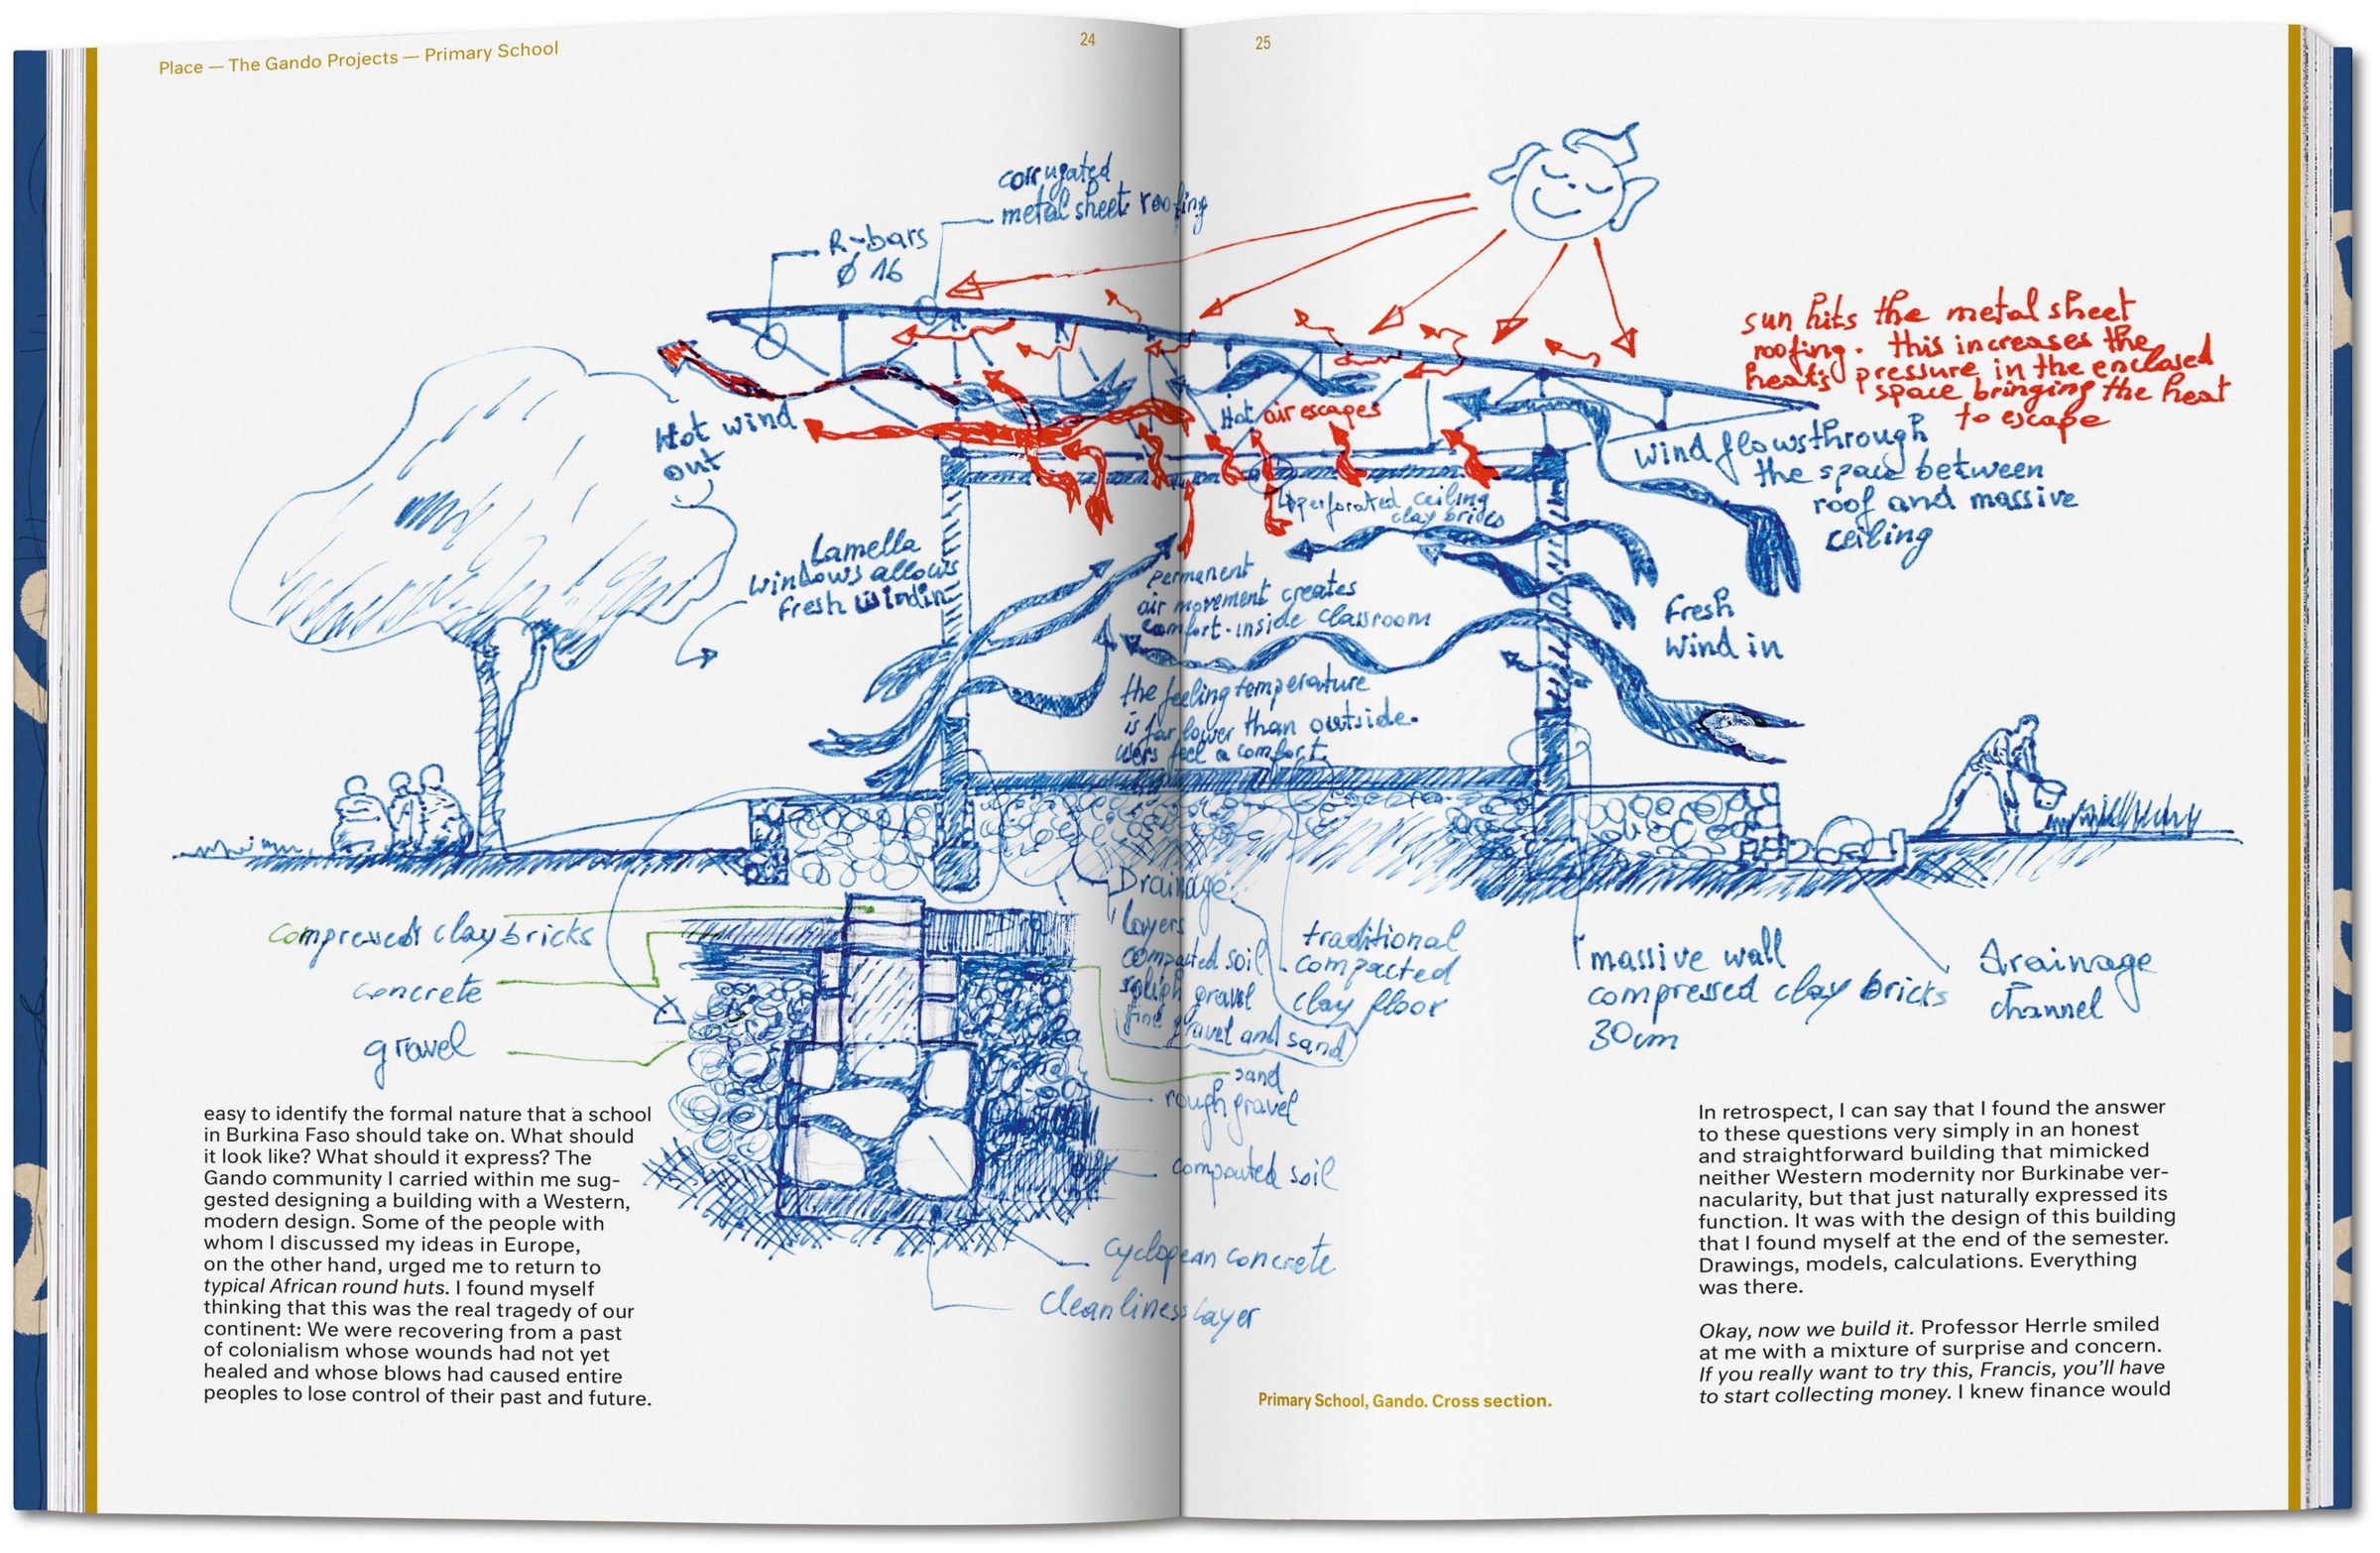 Place — The Gando Projects — Primary School
24
25
corrugated
metal sheet roofing
R-bars
Ø 16
sun hits the metal sheet
roofing. this increases the
heat's pressure in the enclosed
space bringing the heat
to escape
Hot wind
out
Hot air escapes
wind flows through
the space between
roof and massive
ceiling
perforated ceiling
clay brics
Lamella
windows allows
fresh wind in
permanent
air movement creates
comfort-inside classroom
fresh
wind in
the feeling temperature
is far lower than outside.
users feel a comfort.
compressed clay bricks
concrete
gravel
Drainage
layers
compacted soil
rough gravel
fine gravel and sand
traditional
compacted
clay floor
massive wall
compressed clay bricks
30cm
Drainage
channel
sand
rough gravel
compacted soil
cyclopean concrete
cleanliness layer
easy to identify the formal nature that a school
in Burkina Faso should take on. What should
it look like? What should it express? The
Gando community I carried within me sug-
gested designing a building with a Western,
modern design. Some of the people with
whom I discussed my ideas in Europe,
on the other hand, urged me to return to
typical African round huts. I found myself
thinking that this was the real tragedy of our
continent: We were recovering from a past
of colonialism whose wounds had not yet
healed and whose blows had caused entire
peoples to lose control of their past and future.
Primary School, Gando. Cross section.
In retrospect, I can say that I found the answer
to these questions very simply in an honest
and straightforward building that mimicked
neither Western modernity nor Burkinabe ver-
nacularity, but that just naturally expressed its
function. It was with the design of this building
that I found myself at the end of the semester.
Drawings, models, calculations. Everything
was there.
Okay, now we build it. Professor Herrle smiled
at me with a mixture of surprise and concern.
If you really want to try this, Francis, you'll have
to start collecting money. I knew finance would